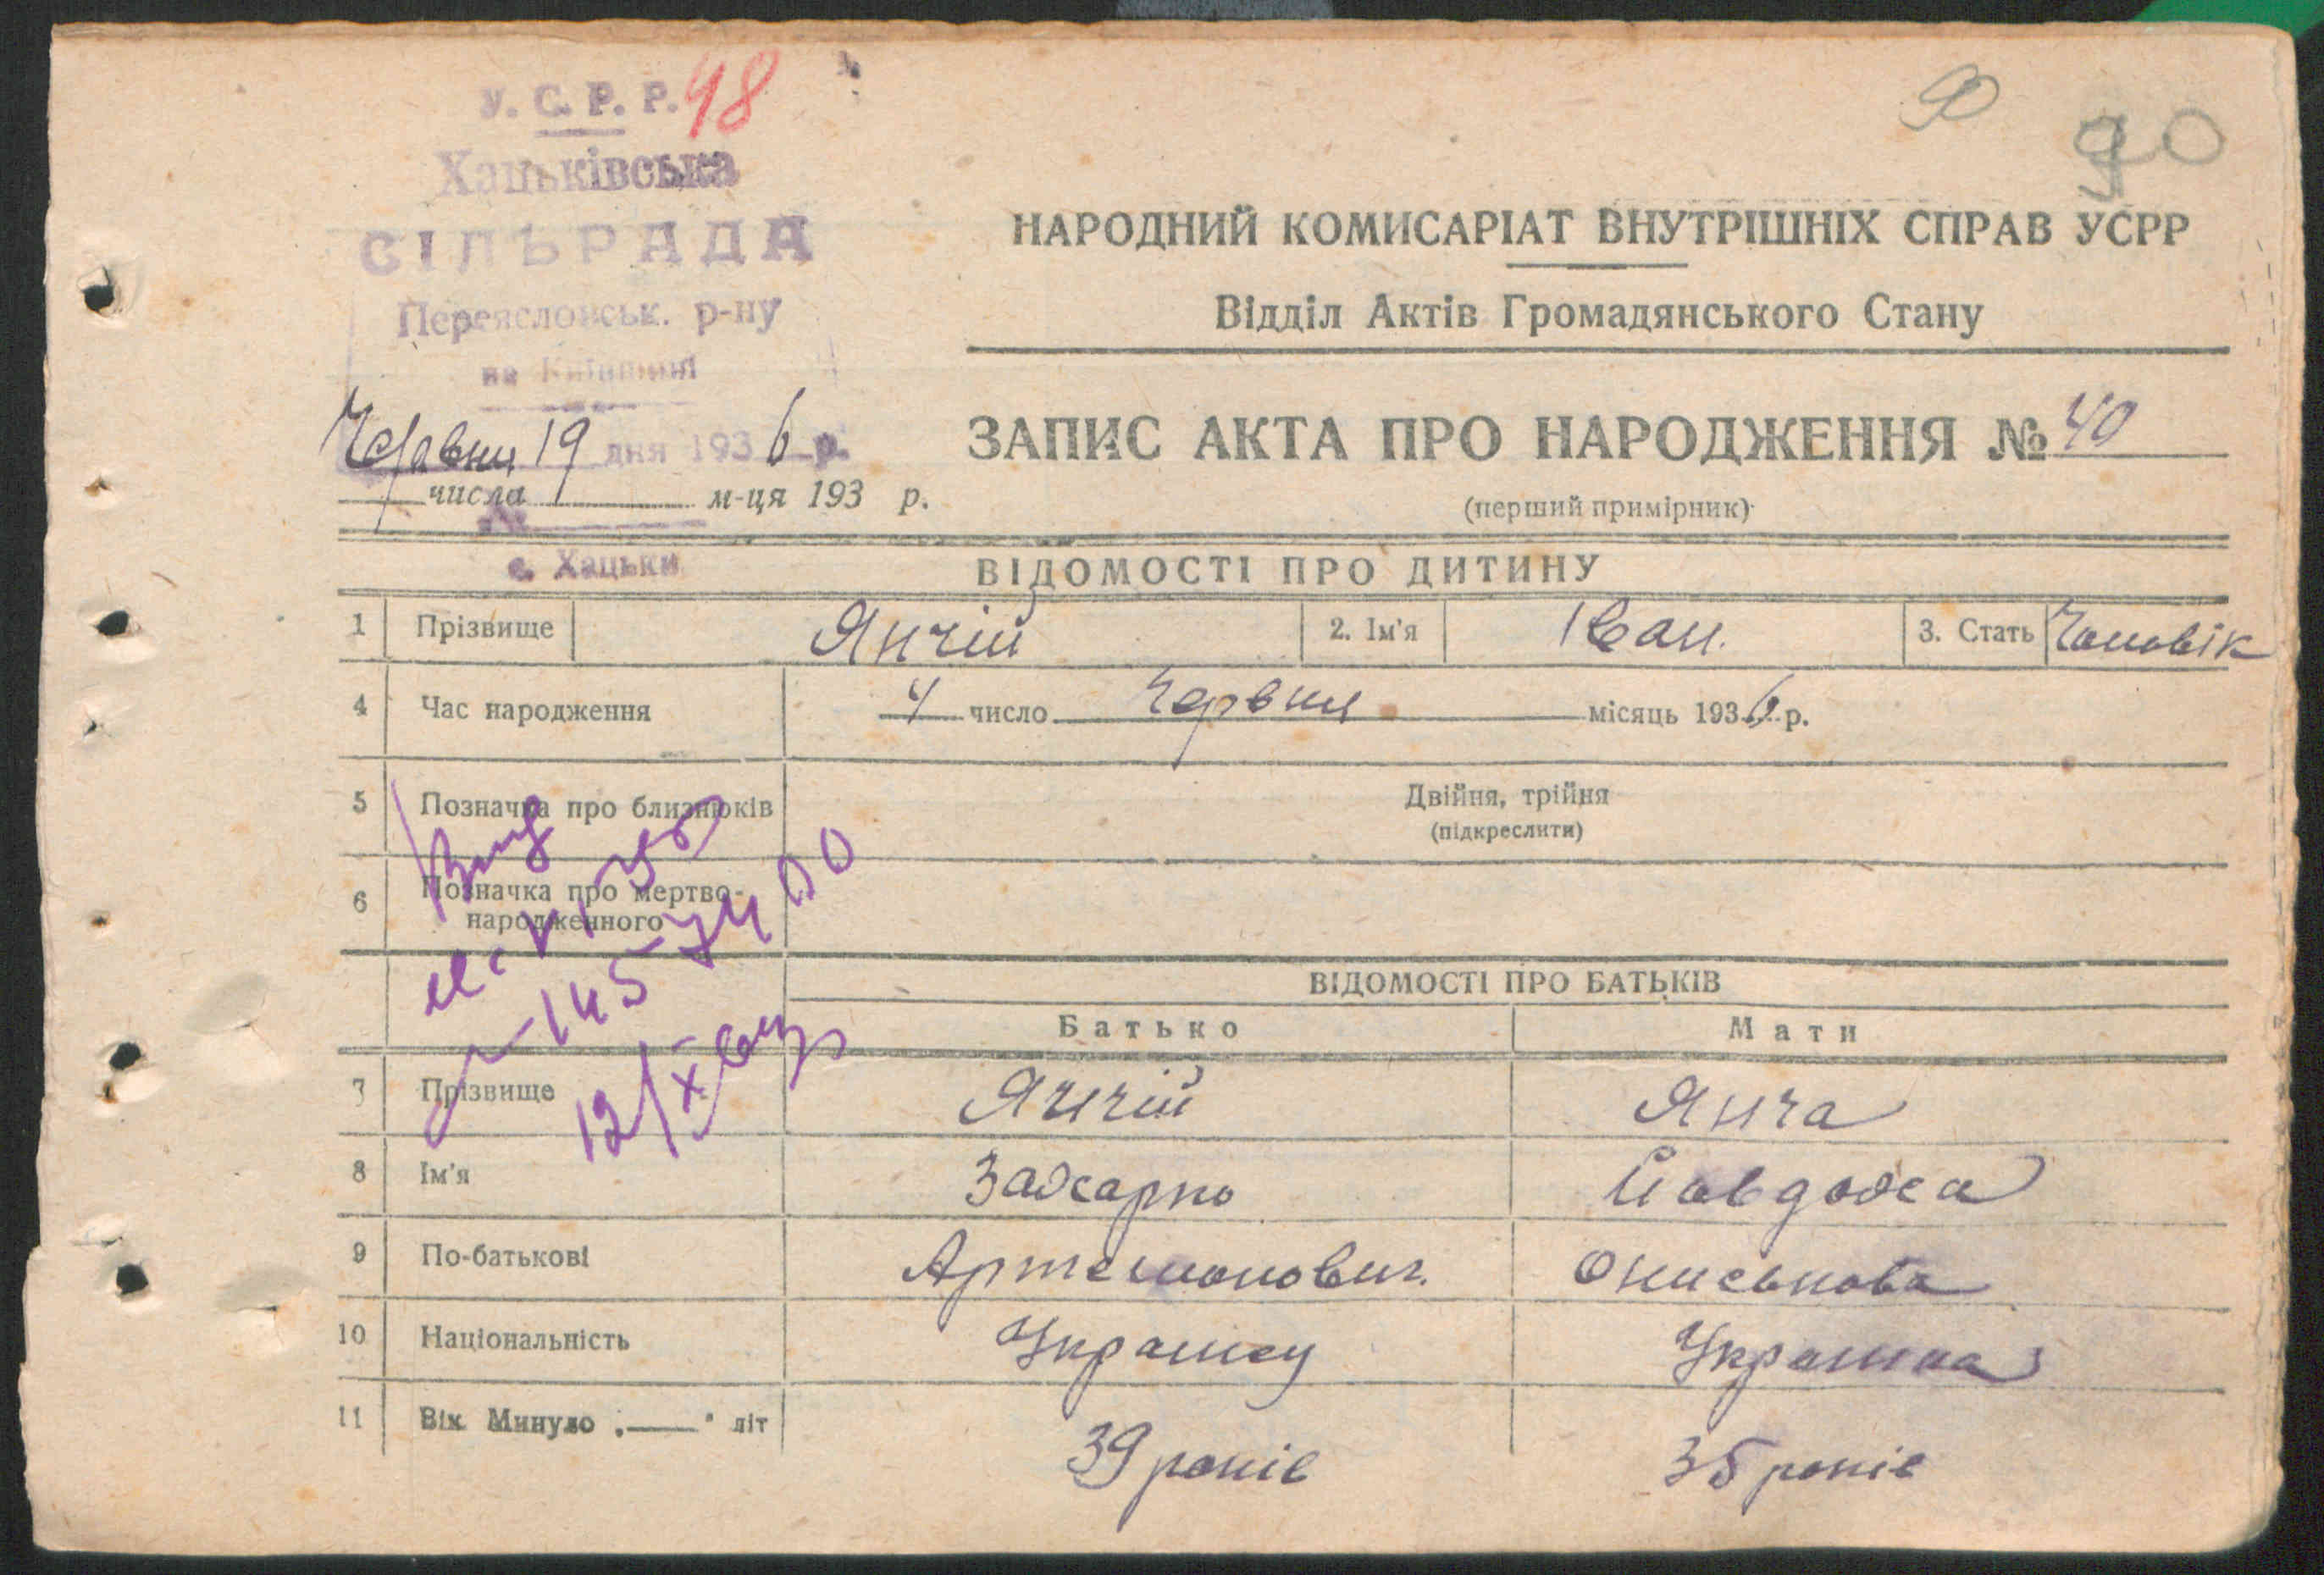 У. С. Р. Р. 48
90
90
Хацьківська
СІЛЬРАДА
Переясловськ. р-ну
на Київщині
НАРОДНИЙ КОМИСАРІАТ ВНУТРІШНІХ СПРАВ УСРР
Відділ Актів Громадянського Стану
Червня 19 дня 1936 р.
числа м-ця 193 р.
№
с. Хацьки
ЗАПИС АКТА ПРО НАРОДЖЕННЯ № 40
(перший примірник)
ВІДОМОСТІ ПРО ДИТИНУ
1 Прізвище Янчій 2. Ім'я Іван. 3. Стать Чоловік
4 Час народження 4 число Червня місяць 1936 р.
5 Позначка про близнюків Двійня, трійня
(підкреслити)
6 Позначка про мертво-
народженного
145
12/X
ВІДОМОСТІ ПРО БАТЬКІВ
Батько Мати
7 Прізвище Янчій Янча
8 Ім'я Захарко Йовдоха
9 По-батькові Артемонович. Ониськова
10 Національність Українец Украінка
11 Вік Минуло „——" літ 39 років 35 років